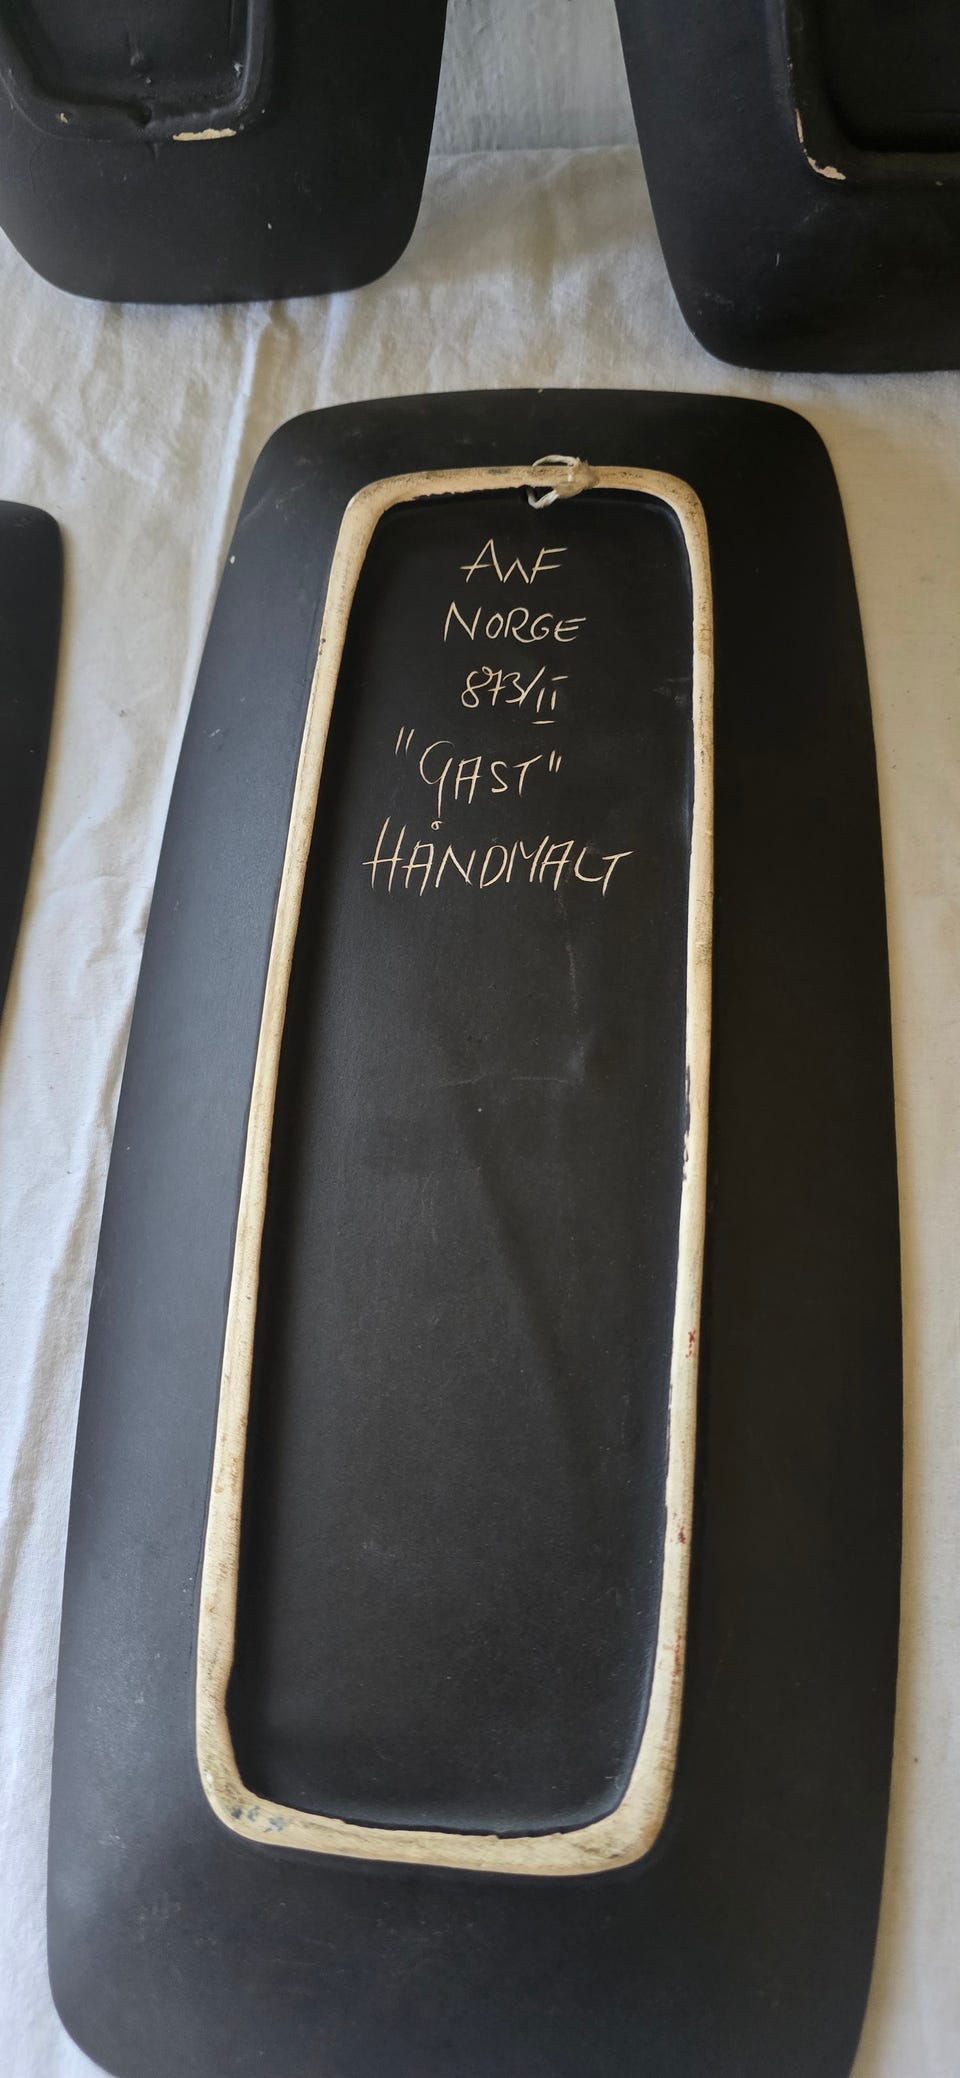 AWF
NORGE
873/II
"GAST"
HÅNDMALT